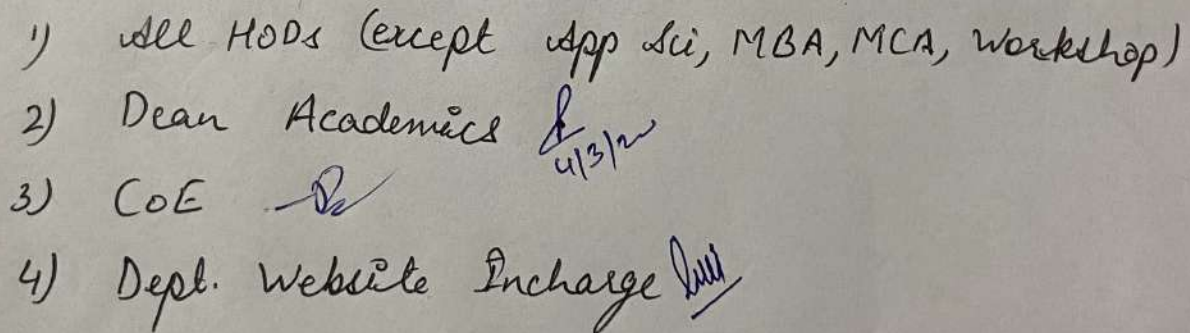 1) All HODs (except App Sci, MBA, MCA, Workshop)
2) Dean Academics
4/3/20
3) CoE
4) Dept. Website Incharge